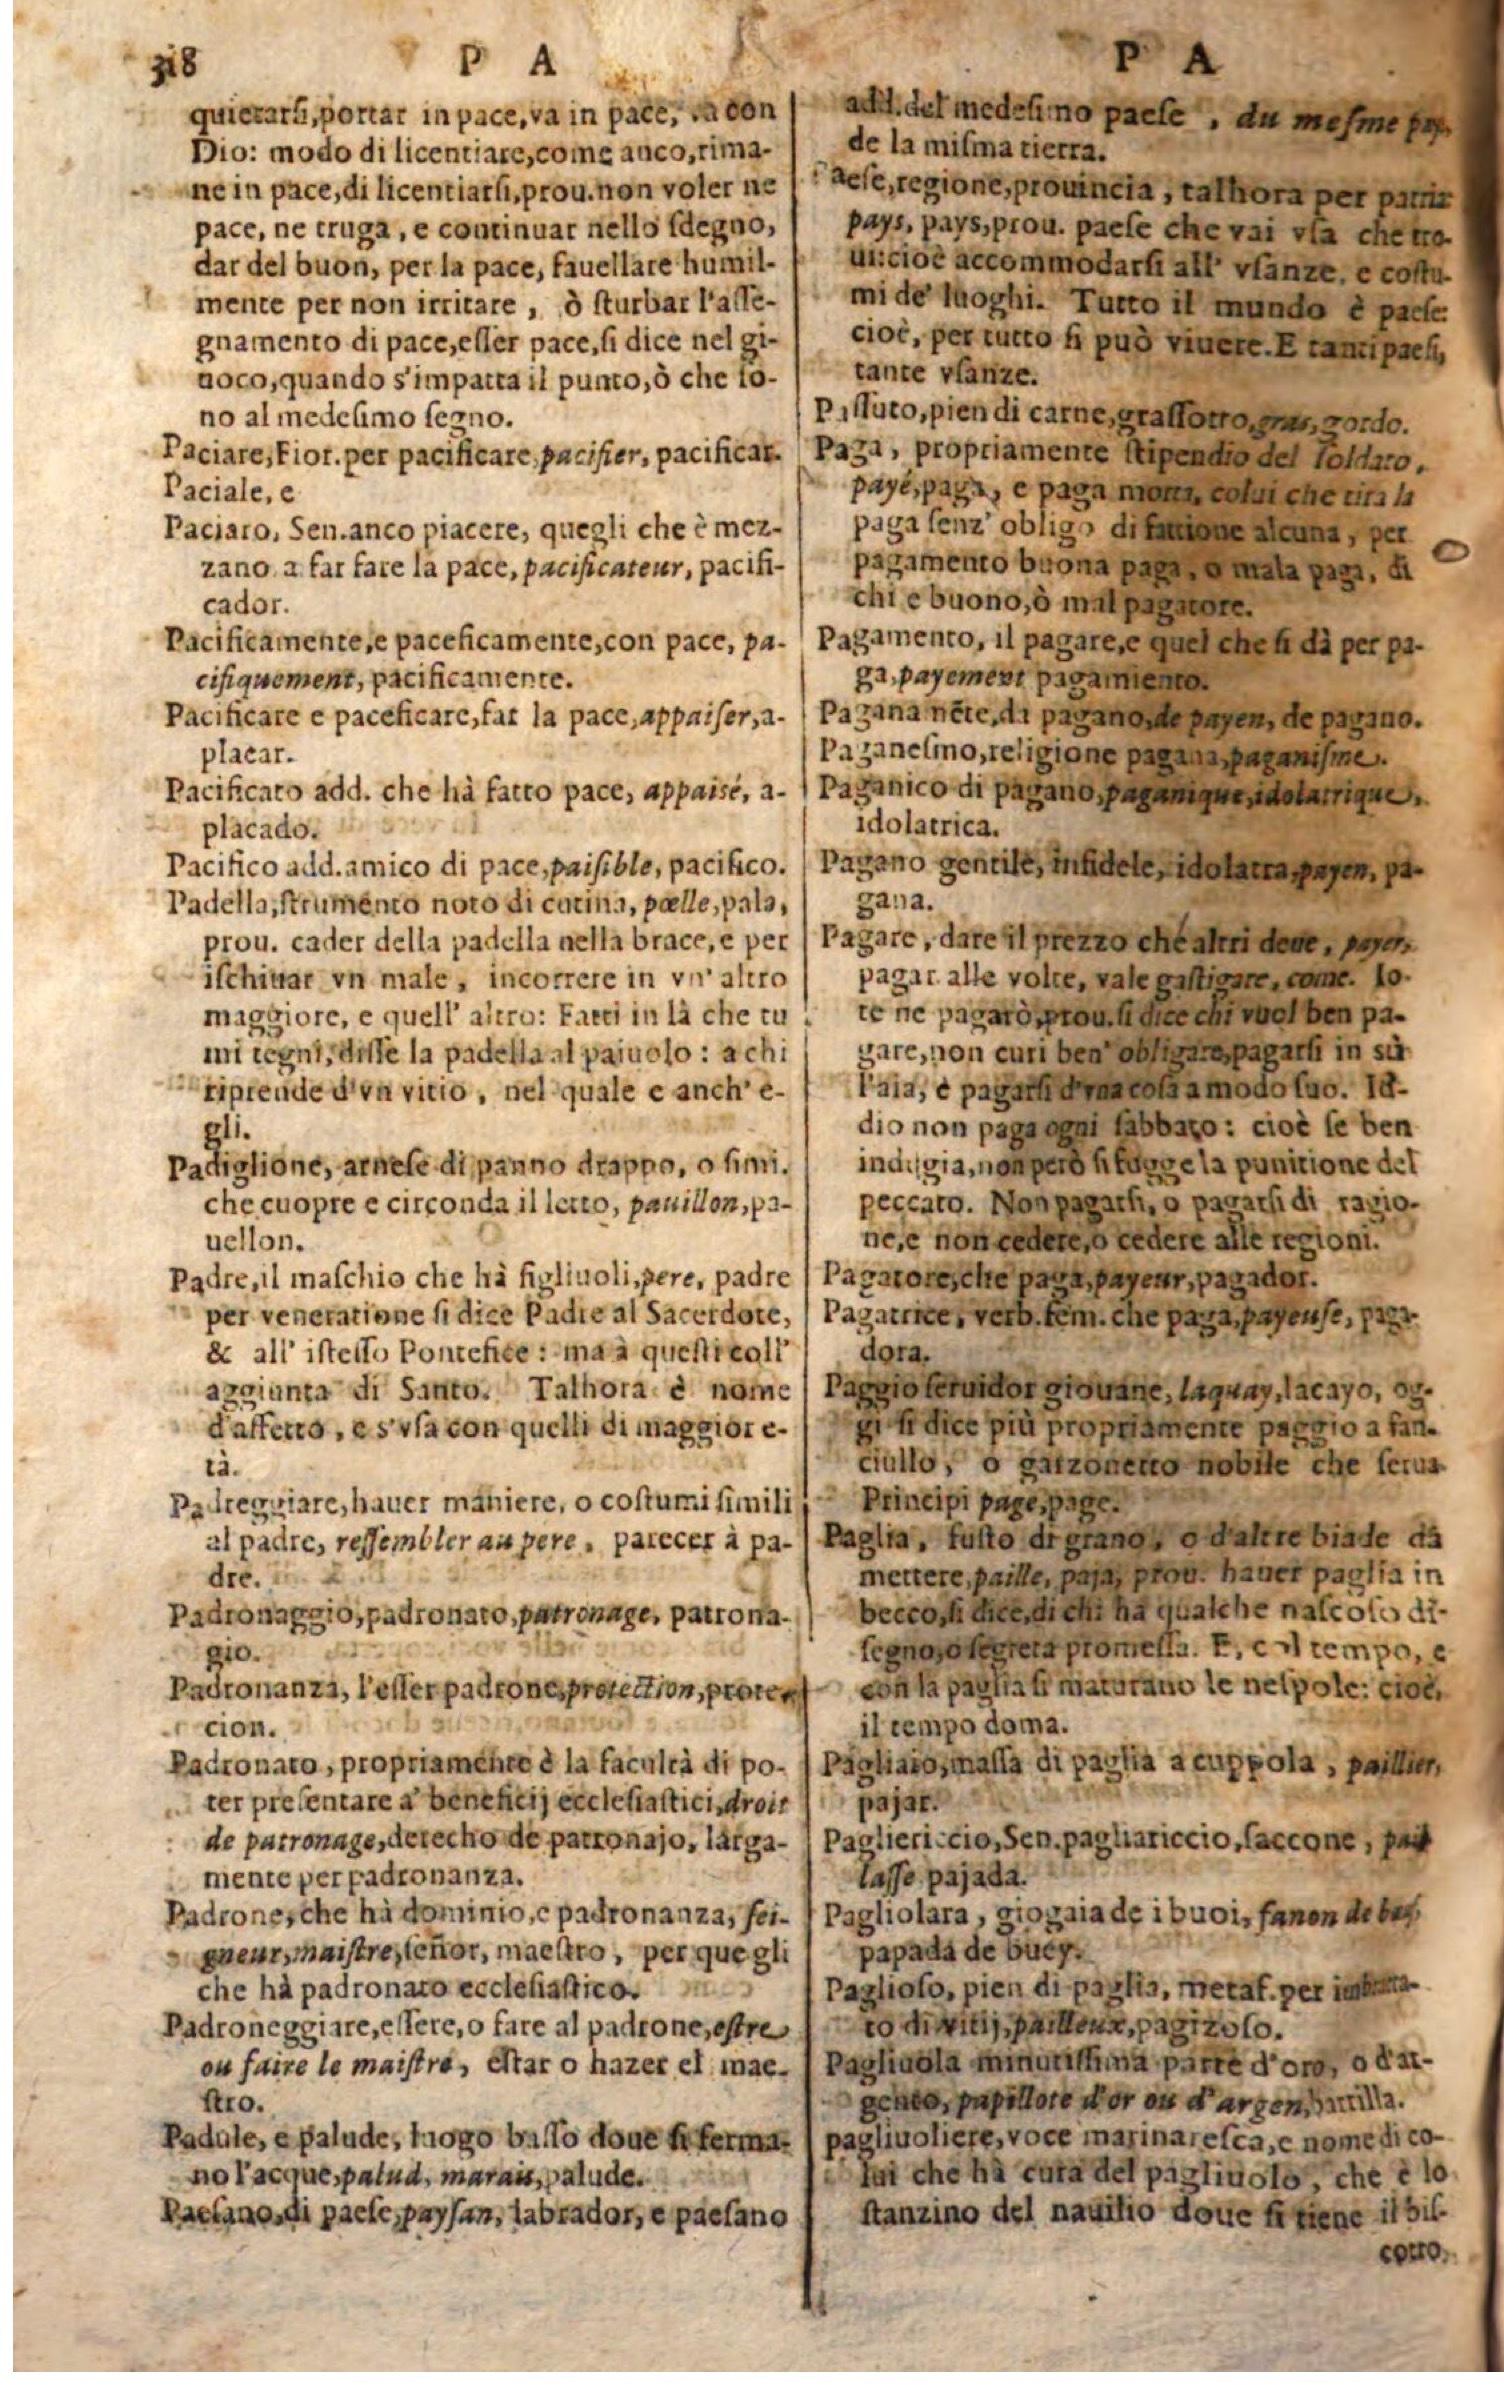 318 P A
quietarſi,portar in pace,va in pace, va con
Dio: modo di licentiare,come anco,rima-
ne in pace,di licentiarſi,prou.non voler ne
pace, ne truga , e continuar nello ſdegno,
dar del buon, per la pace, fauellare humil-
mente per non irritare , ò ſturbar l'aſſe-
gnamento di pace,eſſer pace,ſi dice nel gi-
uoco,quando s'impatta il punto,ò che ſo-
no al medeſimo ſegno.
Paciare,Fior.per pacificare,pacifier, pacificar.
Paciale, e
Paciaro, Sen.anco piacere, quegli che è mez-
zano a far fare la pace, pacificateur, pacifi-
cador.
Pacificamente,e paceficamente,con pace, pa-
cifiquement, pacificamente.
Pacificare e paceficare,far la pace,appaiſer,a-
placar.
Pacificato add. che hà fatto pace, appaisé, a-
placado.
Pacifico add.amico di pace,paiſible, pacifico.
Padella,ſtrumento noto di cucina, pœlle,pala,
prou. cader della padella nella brace,e per
iſchiuar vn male , incorrere in vn' altro
maggiore, e quell' altro: Fatti in là che tu
mi tegni,diſſe la padella al paiuolo : a chi
riprende d'vn vitio , nel quale e anch' e-
gli.
Padiglione, arneſe di panno drappo, o ſimi.
che cuopre e circonda il letto, pauillon,pa-
uellon.
Padre,il maſchio che hà figliuoli,pere, padre
per veneratione ſi dice Padre al Sacerdote,
& all' iſteſſo Pontefice : ma à queſti coll'
aggiunta di Santo. Talhora è nome
d'affetto , e s'vſa con quelli di maggior e-
tà.
Padreggiare,hauer maniere, o coſtumi ſimili
al padre, reſſembler au pere , parecer à pa-
dre.
Padronaggio,padronato,patronage, patrona-
gio.
Padronanza, l'eſſer padrone,protection,prote-
cion.
Padronato , propriamente è la facultà di po-
ter preſentare a' beneficij eccleſiaſtici,droit
de patronage,derecho de patronajo, larga-
mente per padronanza.
Padrone,che hà dominio,e padronanza, ſei-
gneur,maiſtre,ſeñor, maeſtro , per quegli
che hà padronato eccleſiaſtico.
Padroneggiare,eſſere,o fare al padrone,eſtre
ou faire le maiſtre, eſtar o hazer el mae-
ſtro.
Padule, e palude, luogo baſſo doue ſi ferma-
no l'acque,palud, marais,palude.
Paeſano,di paeſe,payſan, labrador, e paeſano
P A
add.del medeſimo paeſe , du meſme pay,
de la miſma tierra.
Paeſe,regione,prouincia , talhora per patria
pays, pays,prou. paeſe che vai vſa che tro-
ui:cioè accommodarſi all' vſanze, e coſtu-
mi de' luoghi. Tutto il mundo è paeſe:
cioè, per tutto ſi può viuere.E tanti paeſi,
tante vſanze.
Paſſuto,pien di carne,graſſotto,gras,gordo.
Paga , propriamente ſtipendio del ſoldato,
payé,paga, e paga morta, colui che tira la
paga ſenz' obligo di fattione alcuna , per
pagamento buona paga, o mala paga, di
chi e buono,ò mal pagatore.
Pagamento, il pagare,e quel che ſi dà per pa-
ga,payement pagamiento.
Pagana nẽte,da pagano,de payen, de pagano.
Paganeſmo,religione pagana,paganiſme.
Paganico di pagano,paganique,idolatrique,
idolatrica.
Pagano gentile, infidele, idolatra,payen, pa-
gana.
Pagare , dare il prezzo che altri deue , payer,
pagar. alle volte, vale gaſtigare, come. Io
te ne pagarò,prou.ſi dice chi vuol ben pa-
gare,non curi ben' obligare,pagarſi in sù
l'aia, è pagarſi d'vna coſa a modo ſuo. Id-
dio non paga ogni ſabbato : cioè ſe ben
indugia,non però ſi fugge la punitione del
peccato. Non pagarſi, o pagarſi di ragio-
ne,e non cedere,o cedere alle regioni.
Pagatore,che paga,payeur,pagador.
Pagatrice, verb.fem. che paga,payeuſe, paga-
dora.
Paggio ſeruidor giouane, laquay,lacayo, og-
gi ſi dice più propriamente paggio a fan-
ciullo, o garzonetto nobile che ſerua
Principi page,page.
Paglia, fuſto di grano, o d'altre biade da
mettere,paille, paja, prou. hauer paglia in
becco,ſi dice,di chi ha qualche naſcoſo di-
ſegno,o ſegreta promeſſa. E, col tempo, e
con la paglia ſi maturano le neſpole: cioè,
il tempo doma.
Pagliaio,maſſa di paglia a cuppola , paillier,
pajar.
Pagliericcio,Sen.pagliariccio,ſaccone , pail
laſſe pajada.
Pagliolara , giogaia de i buoi, fanon de beuf,
papada de buey.
Paglioſo, pien di paglia, metaf.per imbratta-
to di vitij,pailleux,pagizoſo.
Pagliuola minutiſſima parte d'oro, o d'ar-
gento, papillote d'or ou d'argen,
pagliuoliere,voce marinareſca,e nome di co-
lui che hà cura del pagliuolo , che è lo
ſtanzino del nauilio doue ſi tiene il biſ-
cotto,